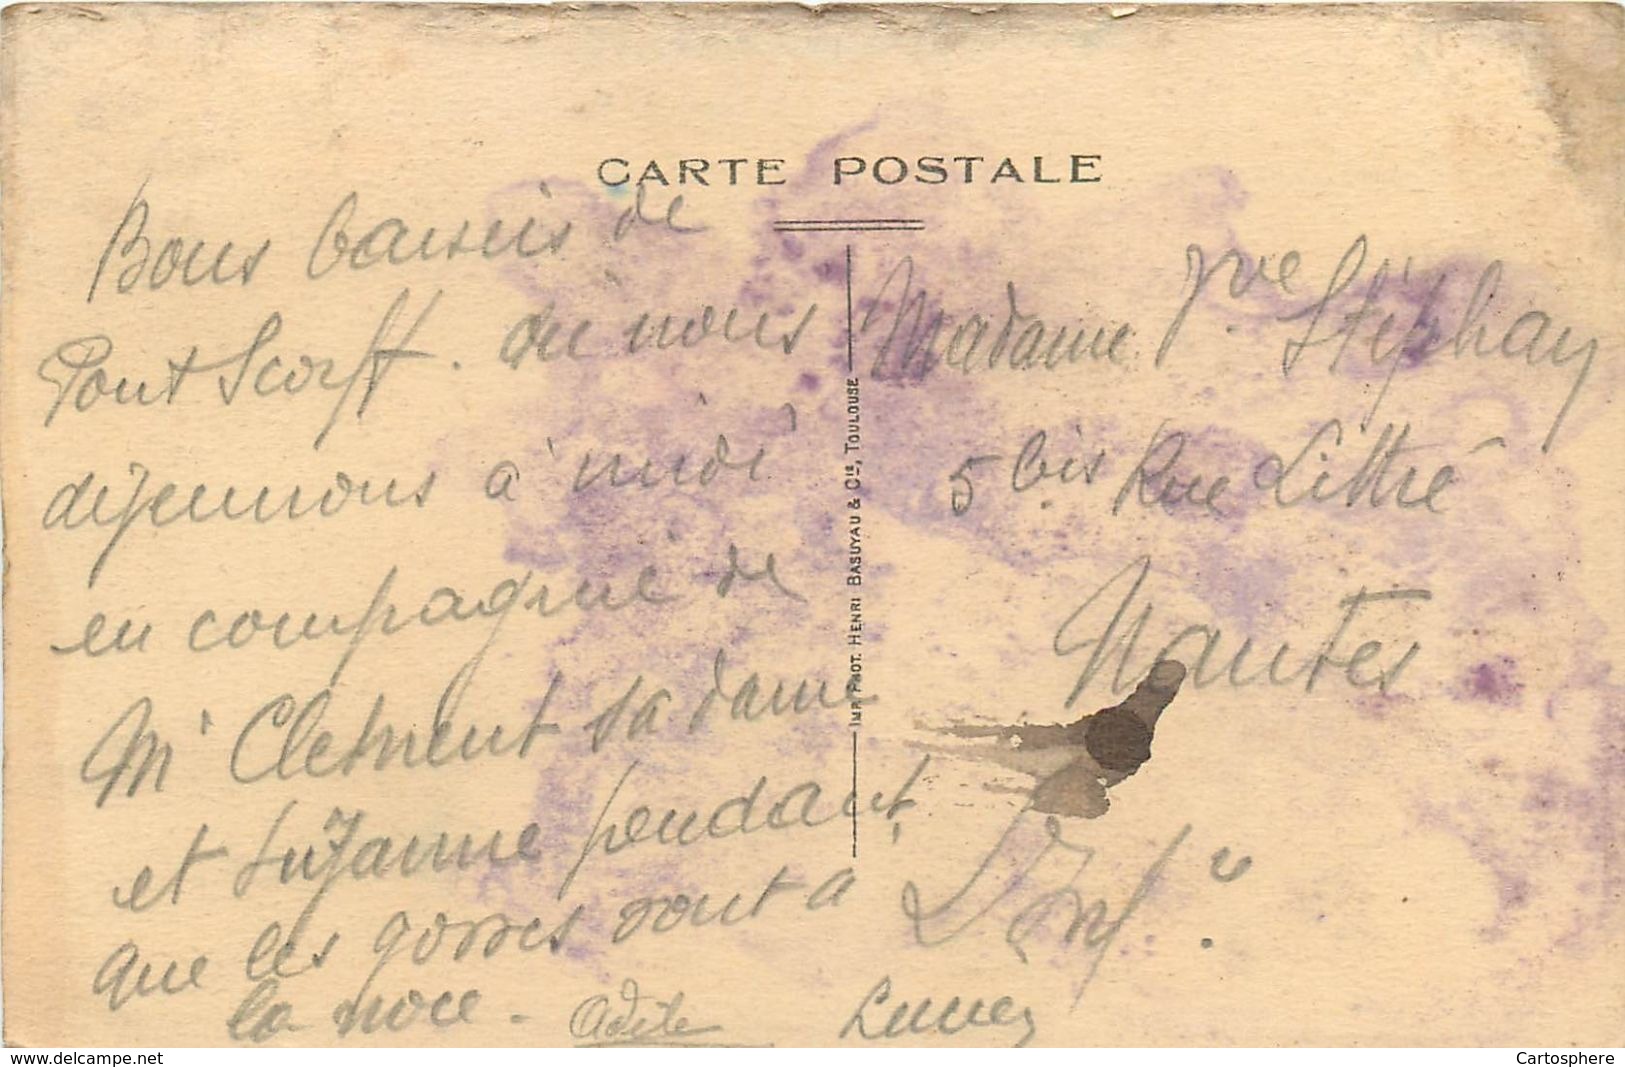 CARTE POSTALE
Bons baisers de
Pont Scorff. où nous
déjeunons à midi
en compagnie de
Mr Clement sa dame
et Suzanne pendant
que les gosses vont à
la noce.
IMP. PHOT. HENRI BASUYAU & Cie, TOULOUSE
Madame Vve Stéphan
5 bis Rue Littré
Nantes
Lre Infre
Cartosphere